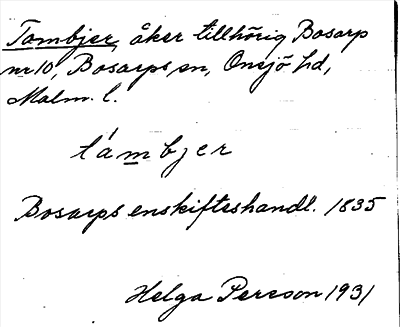 Tombjer, åker tillhörig Bosarp
nr 10, Bosarps sn, Onsjö hd,
Malm. l.
támbjer
Bosarps enskifteshandl. 1835
Helga Persson 1931